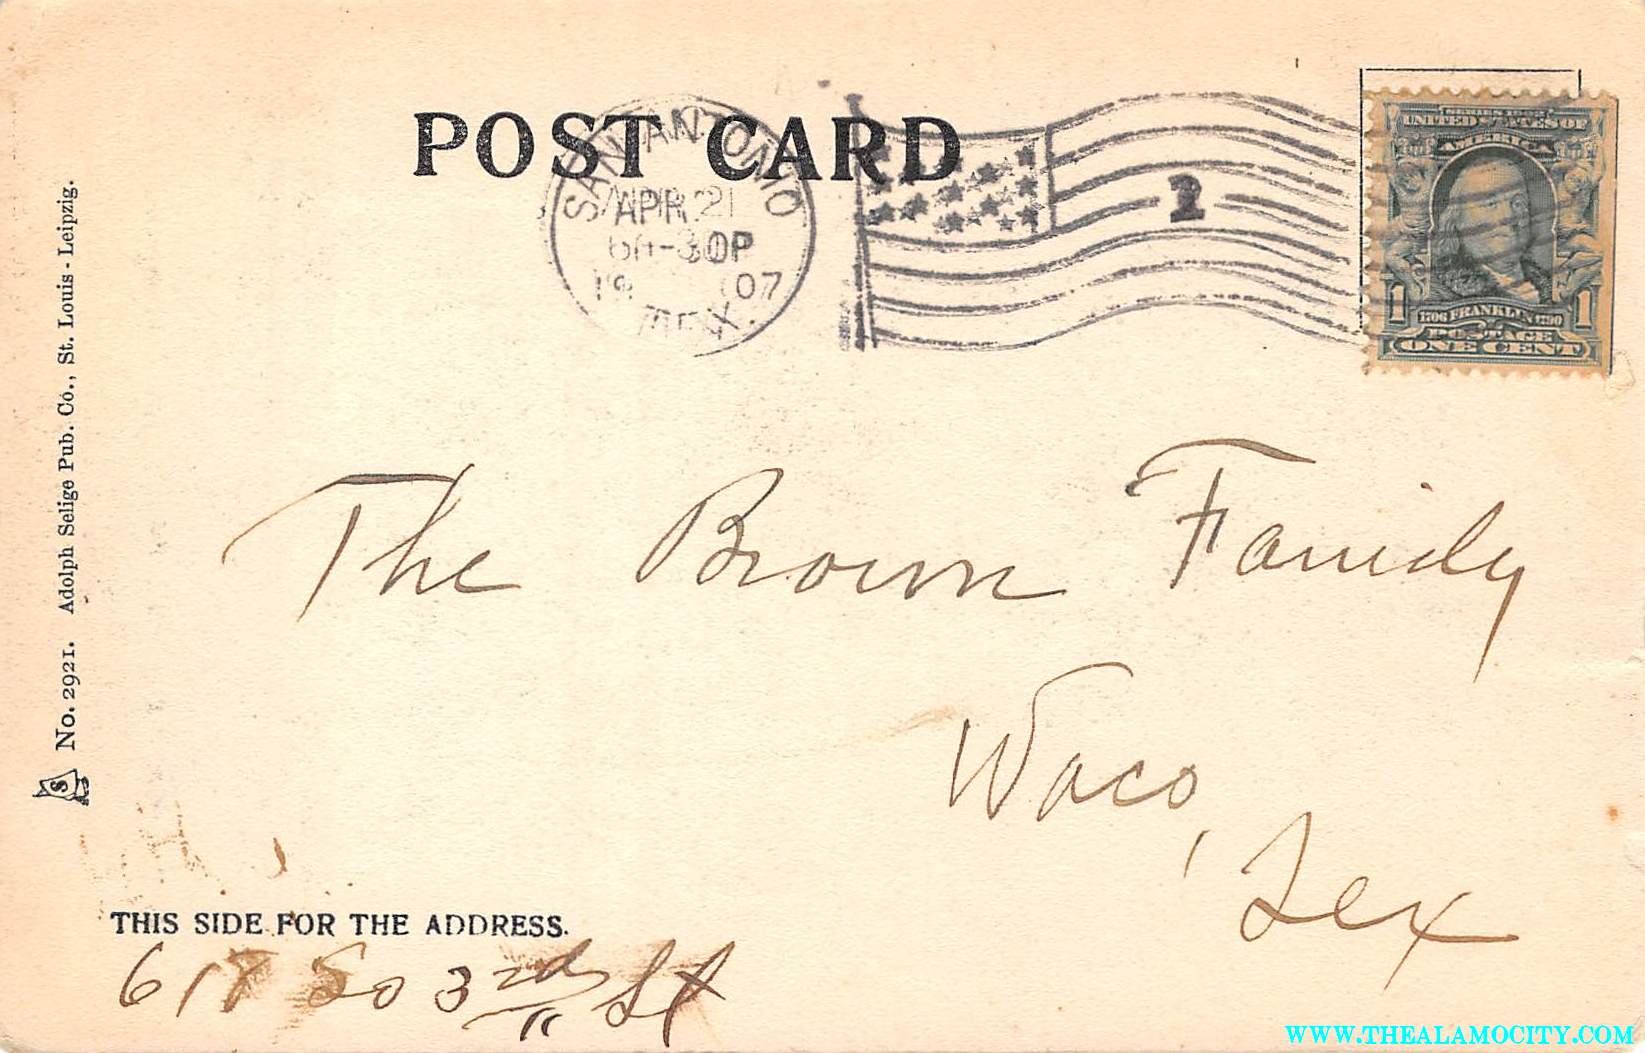 POST CARD
SAN ANTONIO
APR 21
30P
07
TEX.
2
SERIES 1902
UNITED STATES OF
AMERICA
1 1
1706 FRANKLIN 1790
POSTAGE
ONE CENT
No. 2921. Adolph Selige Pub. Co., St. Louis - Leipzig.
S
The Brown Family
Waco,
Tex
THIS SIDE FOR THE ADDRESS.
So 3rd St
WWW.THEALAMOCITY.COM